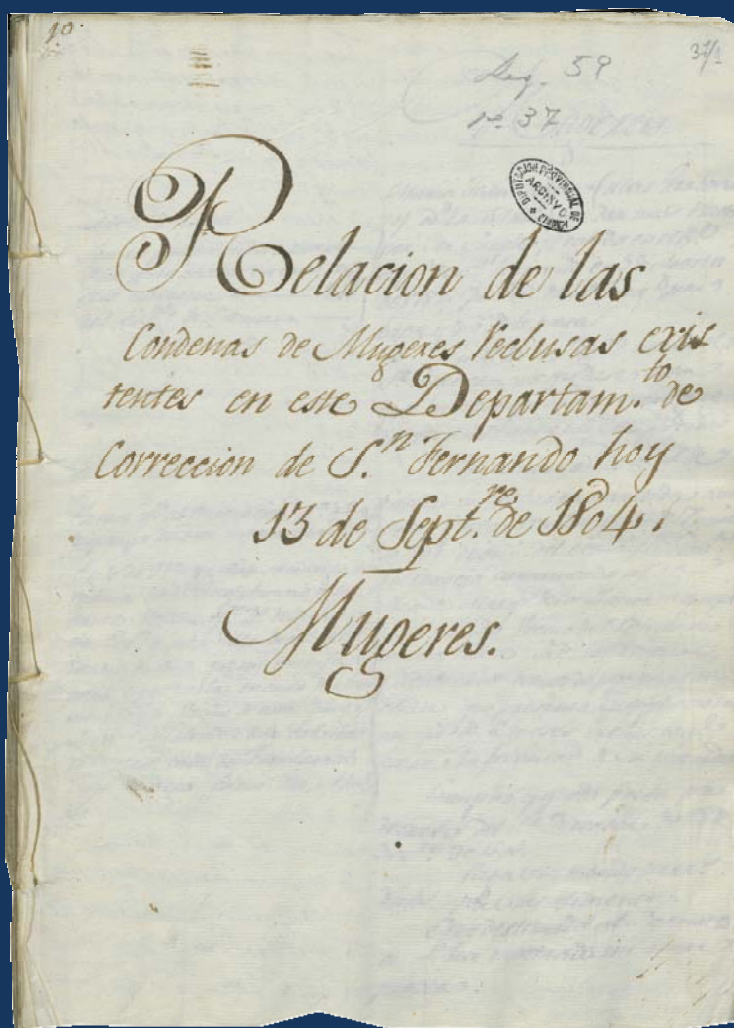 10.
37/1
Leg. 59
nº 37
DIPUTACION PROVINCIAL DE MADRID
ARCHIVO
Relacion de las
Condenas de Mugeres Reclusas exis
tentes en este Departam.to de
Correccion de S.n Fernando hoy
13 de Sept.re de 1804.
Mugeres.